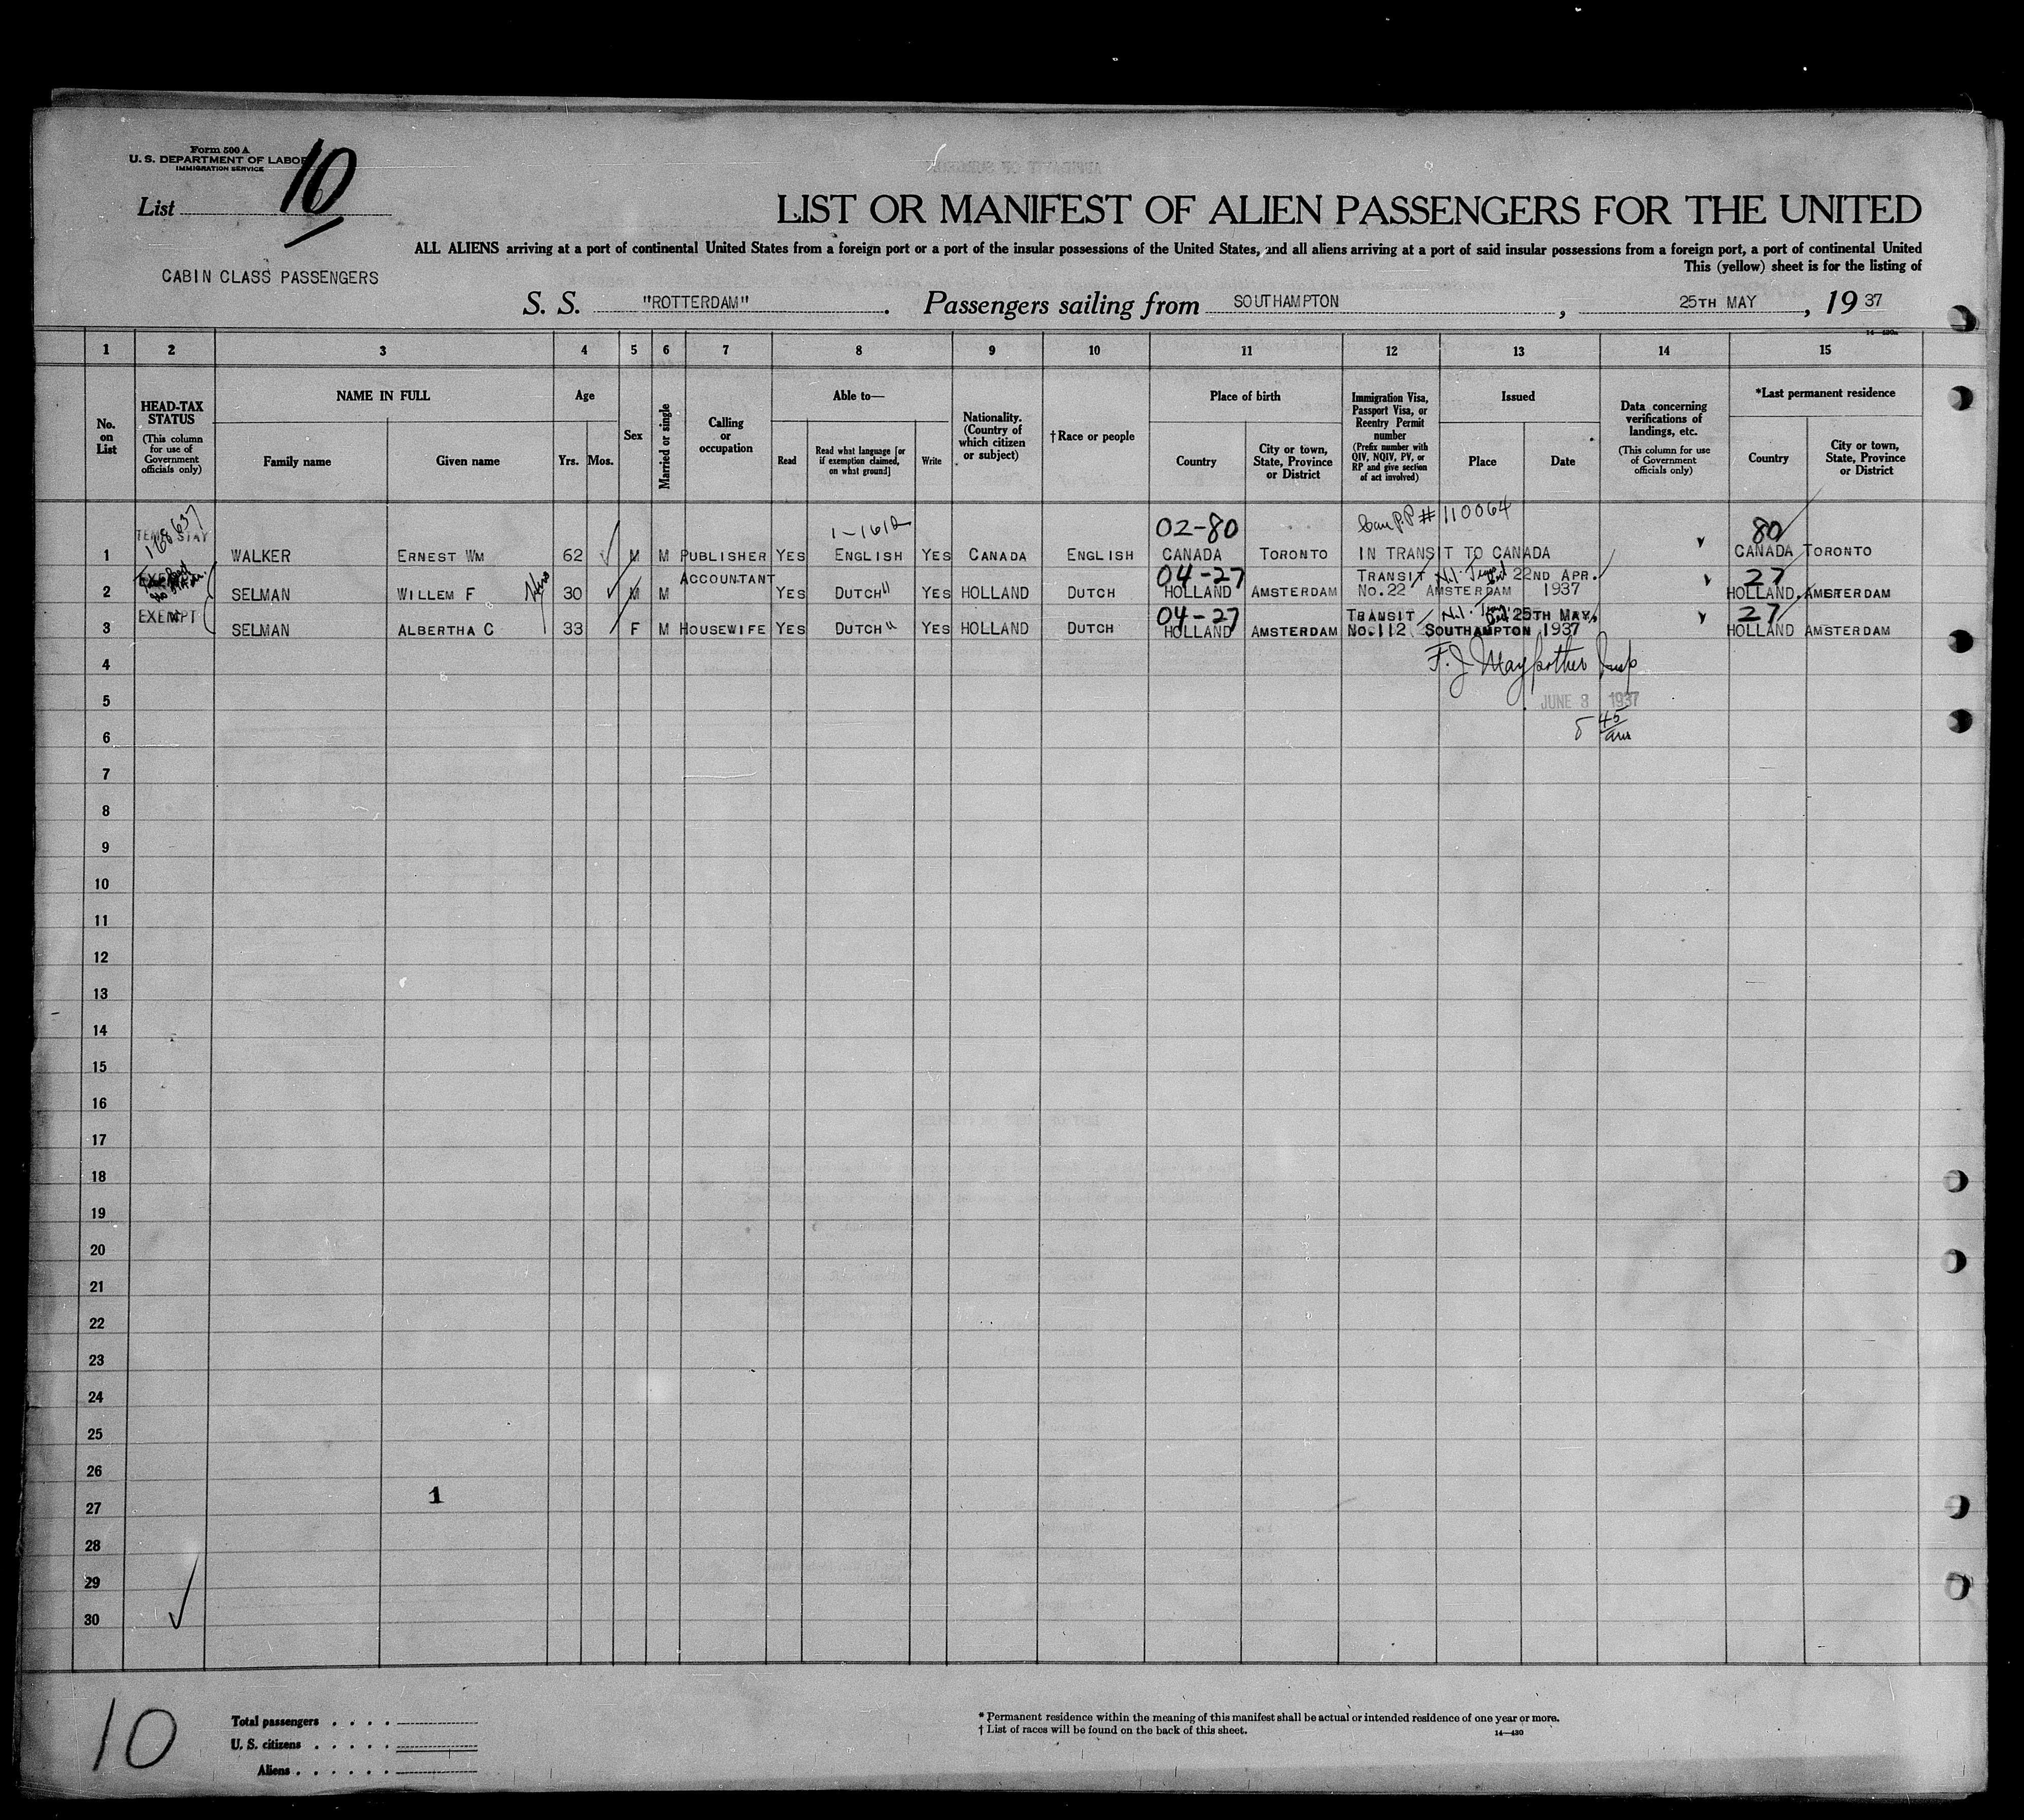 Form 500 A
U. S. DEPARTMENT OF LABOR
IMMIGRATION SERVICE
List 10
LIST OR MANIFEST OF ALIEN PASSENGERS FOR THE UNITED
ALL ALIENS arriving at a port of continental United States from a foreign port or a port of the insular possessions of the United States, and all aliens arriving at a port of said insular possessions from a foreign port, a port of continental United
This (yellow) sheet is for the listing of
CABIN CLASS PASSENGERS
S. S. "ROTTERDAM". Passengers sailing from SOUTHAMPTON, 25TH MAY, 1937
14—430a
1 2 3 4 5 6 7 8 9 10 11 12 13 14 15
No. on List
HEAD-TAX STATUS (This column for use of Government officials only)
NAME IN FULL Family name Given name
Age Yrs. Mos.
Sex
Married or single
Calling or occupation
Able to— Read Read what language [or if exemption claimed, on what ground] Write
Nationality. (Country of which citizen or subject)
†Race or people
Place of birth Country City or town, State, Province or District
Immigration Visa, Passport Visa, or Reentry Permit number (Prefix number with QIV, NQIV, PV, or RP and give section of act involved)
Issued Place Date
Data concerning verifications of landings, etc. (This column for use of Government officials only)
*Last permanent residence Country City or town, State, Province or District
168637 02-80 Can P.P # 110064 80
1 TEMP STAY WALKER ERNEST WM 62 M M PUBLISHER YES ENGLISH YES CANADA ENGLISH CANADA TORONTO IN TRANSIT TO CANADA CANADA TORONTO
04-27 27
2 SELMAN WILLEM F 30 M M ACCOUNTANT YES DUTCH " YES HOLLAND DUTCH HOLLAND AMSTERDAM TRANSIT No.22 AMSTERDAM 22ND APR. 1937 HOLLAND. AMSTERDAM
04-27 27
3 EXEMPT SELMAN ALBERTHA C 33 F M HOUSEWIFE YES DUTCH " YES HOLLAND DUTCH HOLLAND AMSTERDAM TRANSIT No.112 SOUTHAMPTON 25TH MAY, 1937 HOLLAND AMSTERDAM
4
5 JUNE 3 1937
6 8 45 am
7
8
9
10
11
12
13
14
15
16
17
18
19
20
21
22
23
24
25
26
1
27
28
29
30
10
Total passengers . . . .
U. S. citizens . . . . .
Aliens . . . . . .
* Permanent residence within the meaning of this manifest shall be actual or intended residence of one year or more.
† List of races will be found on the back of this sheet.
14—430